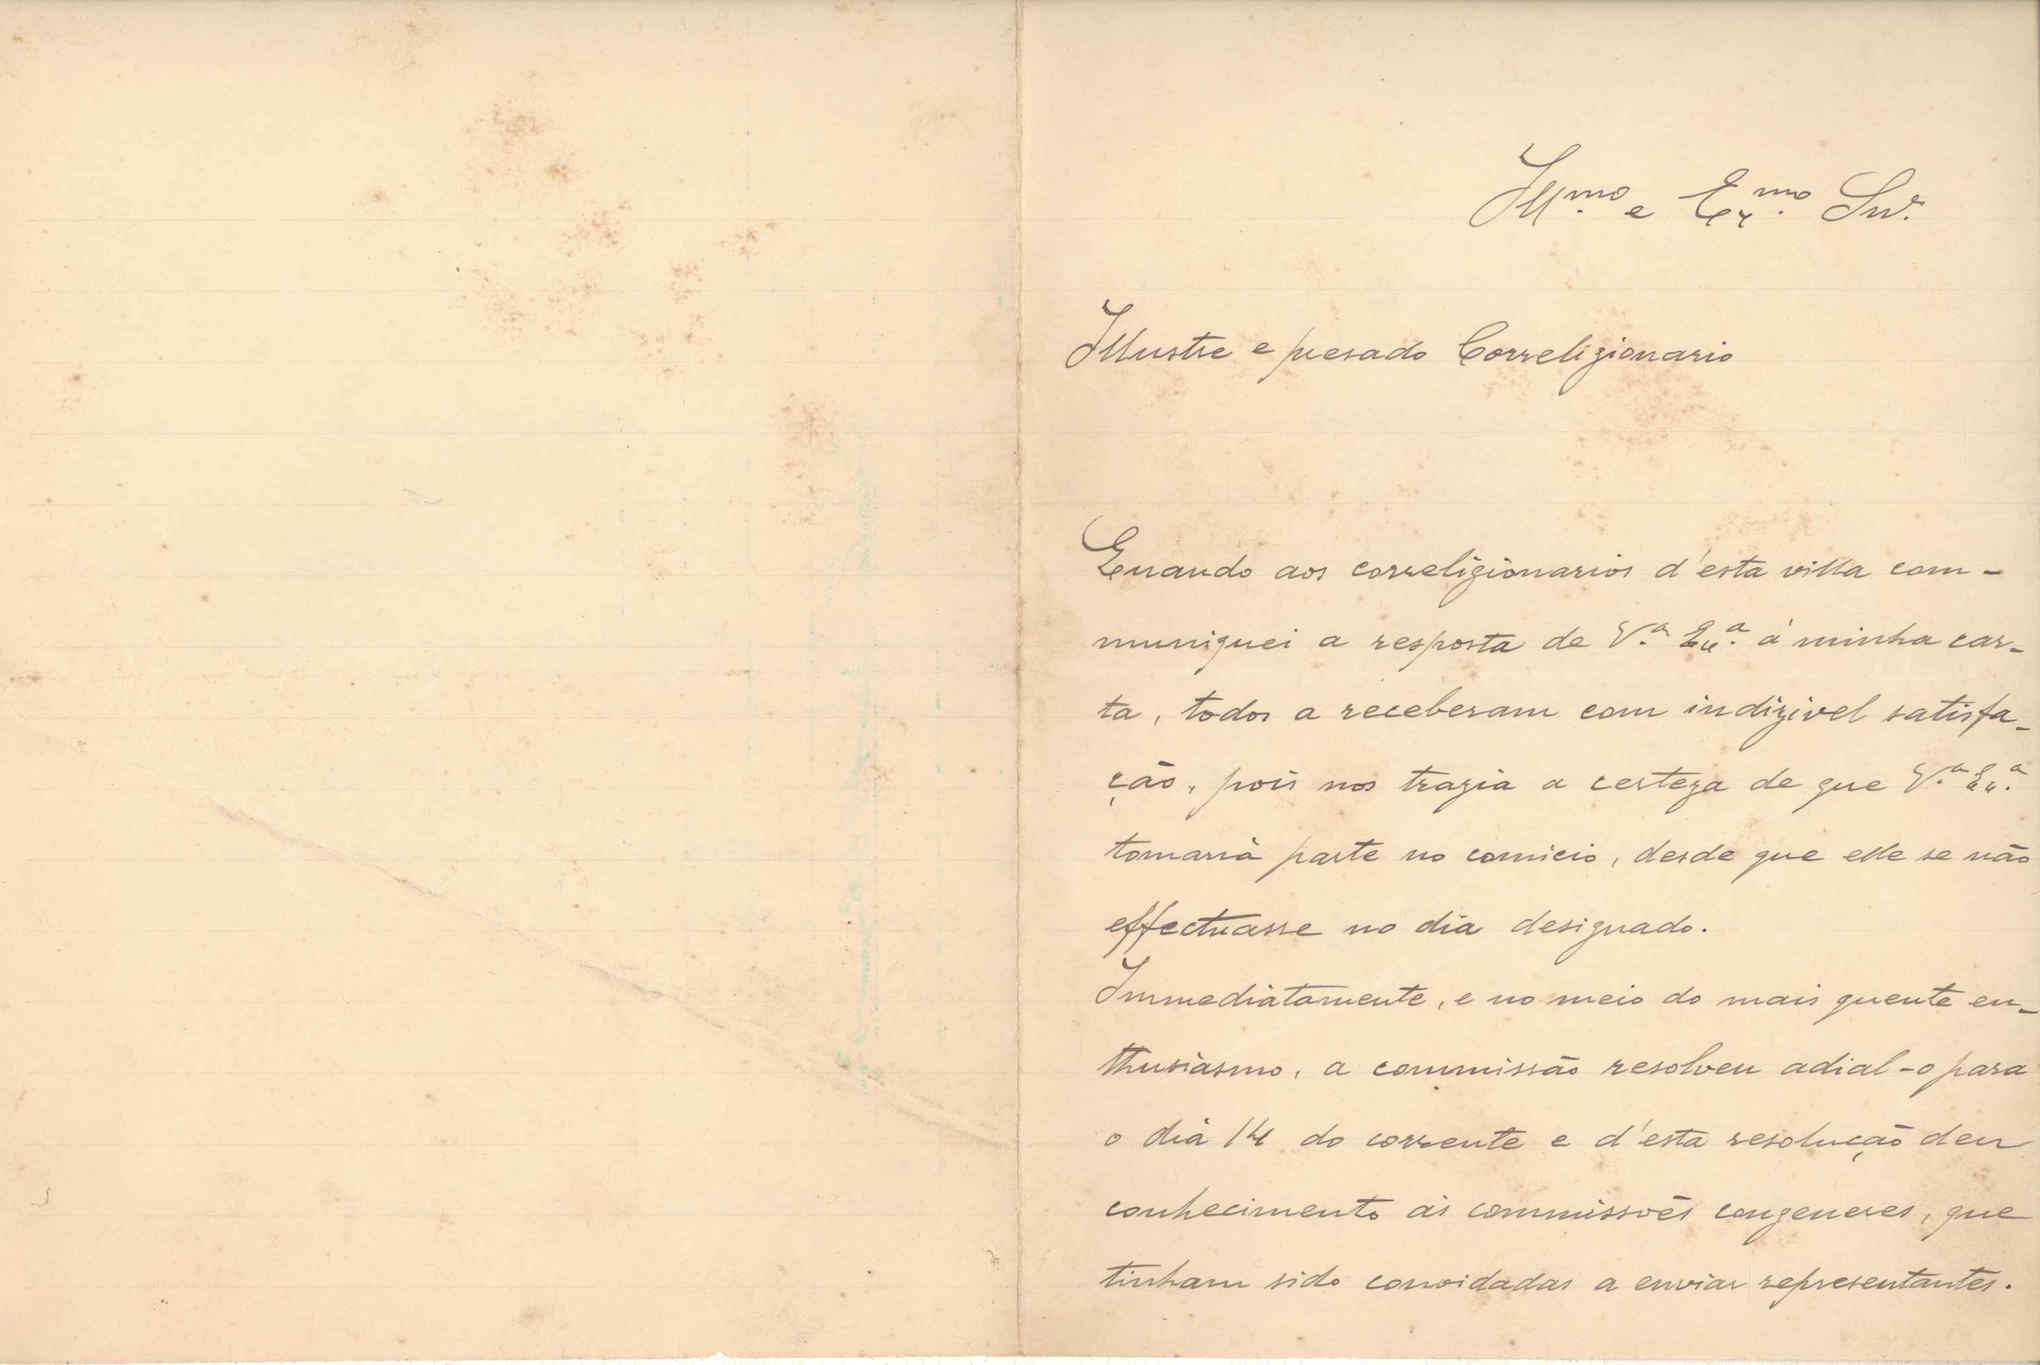 Ill.mo e Ex.mo Snr.
Illustre e presado Correligionario
Quando aos correligionarios d'esta villa com-
muniquei a resposta de V.a Ex.a á minha car-
ta, todos a receberam com indizivel satisfa-
ção, pois nos trazia a certeza de que V.a Ex.a
tomaria parte no comicio, desde que elle se não
effectuasse no dia designado.
Immediatamente, e no meio do mais quente en-
thusiasmo, a commissão resolveu adial-o para
o dia 14 do corrente e d'esta resolução deu
conhecimento ás commissões congeneres, que
tinham sido convidadas a enviar representantes.